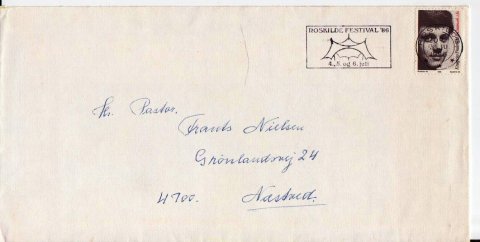 ROSKILDE FESTIVAL '86
4., 5. og 6. juli
Hr. Pastor.
Frants Nielsen
Grönlandsvej 24
4700. Næstved.